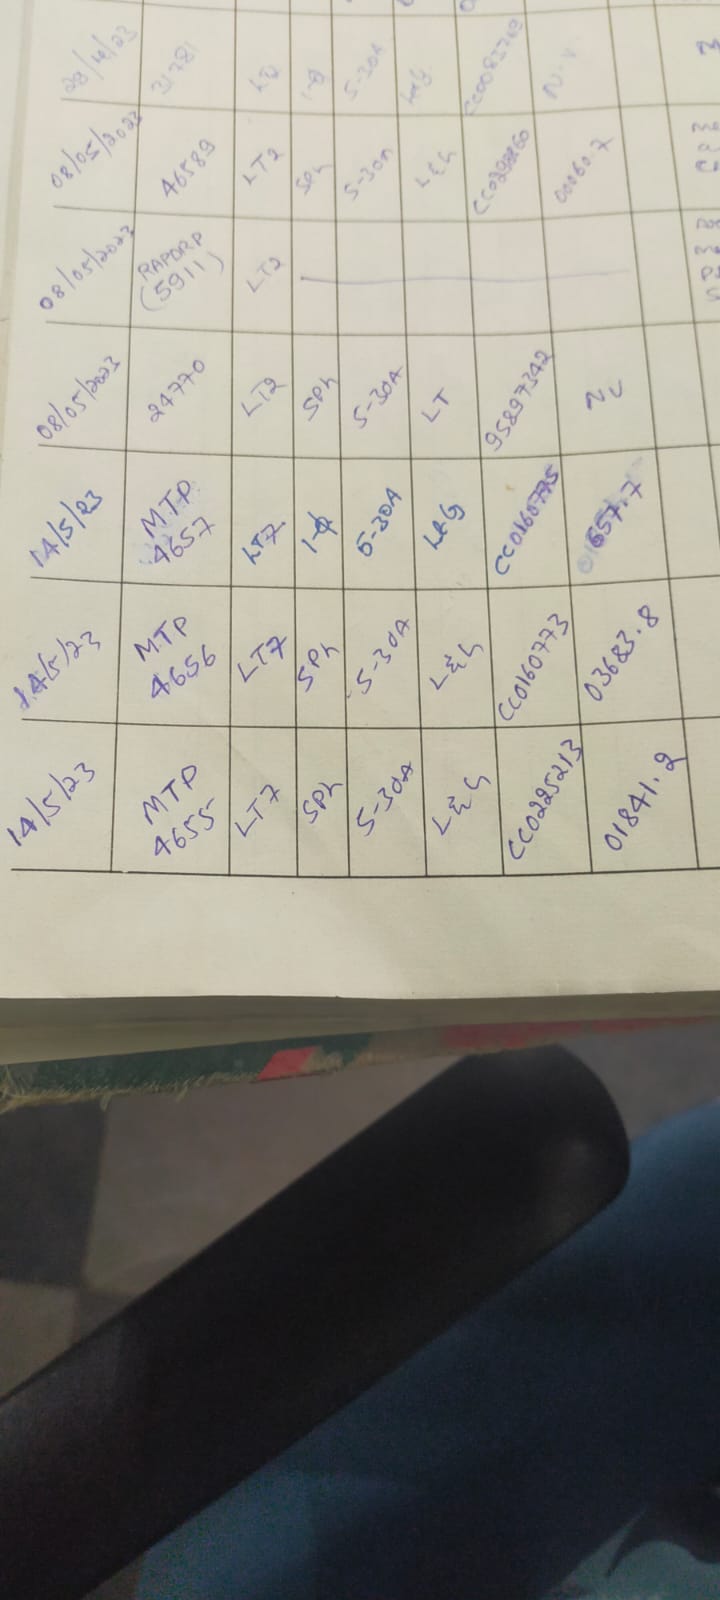 28/4/23 31781 1-φ 5-30A L&G CC0083769
08/05/2023 46589 LT2 SPh 5-30A L&G 00060.7
08/05/2023 RAPDRP (5911) LT2
08/05/2023 24770 LT2 SPh 5-30A LT 95897342
14/5/23 MTP 4657 LT7 1-φ 5-30A L&G CC0160775
14/5/23 MTP 4656 LT7 SPh 5-30A L&G CC0160773 03683.8
14/5/23 MTP 4655 LT7 SPh 5-30A L&G CC0225213 01841.2